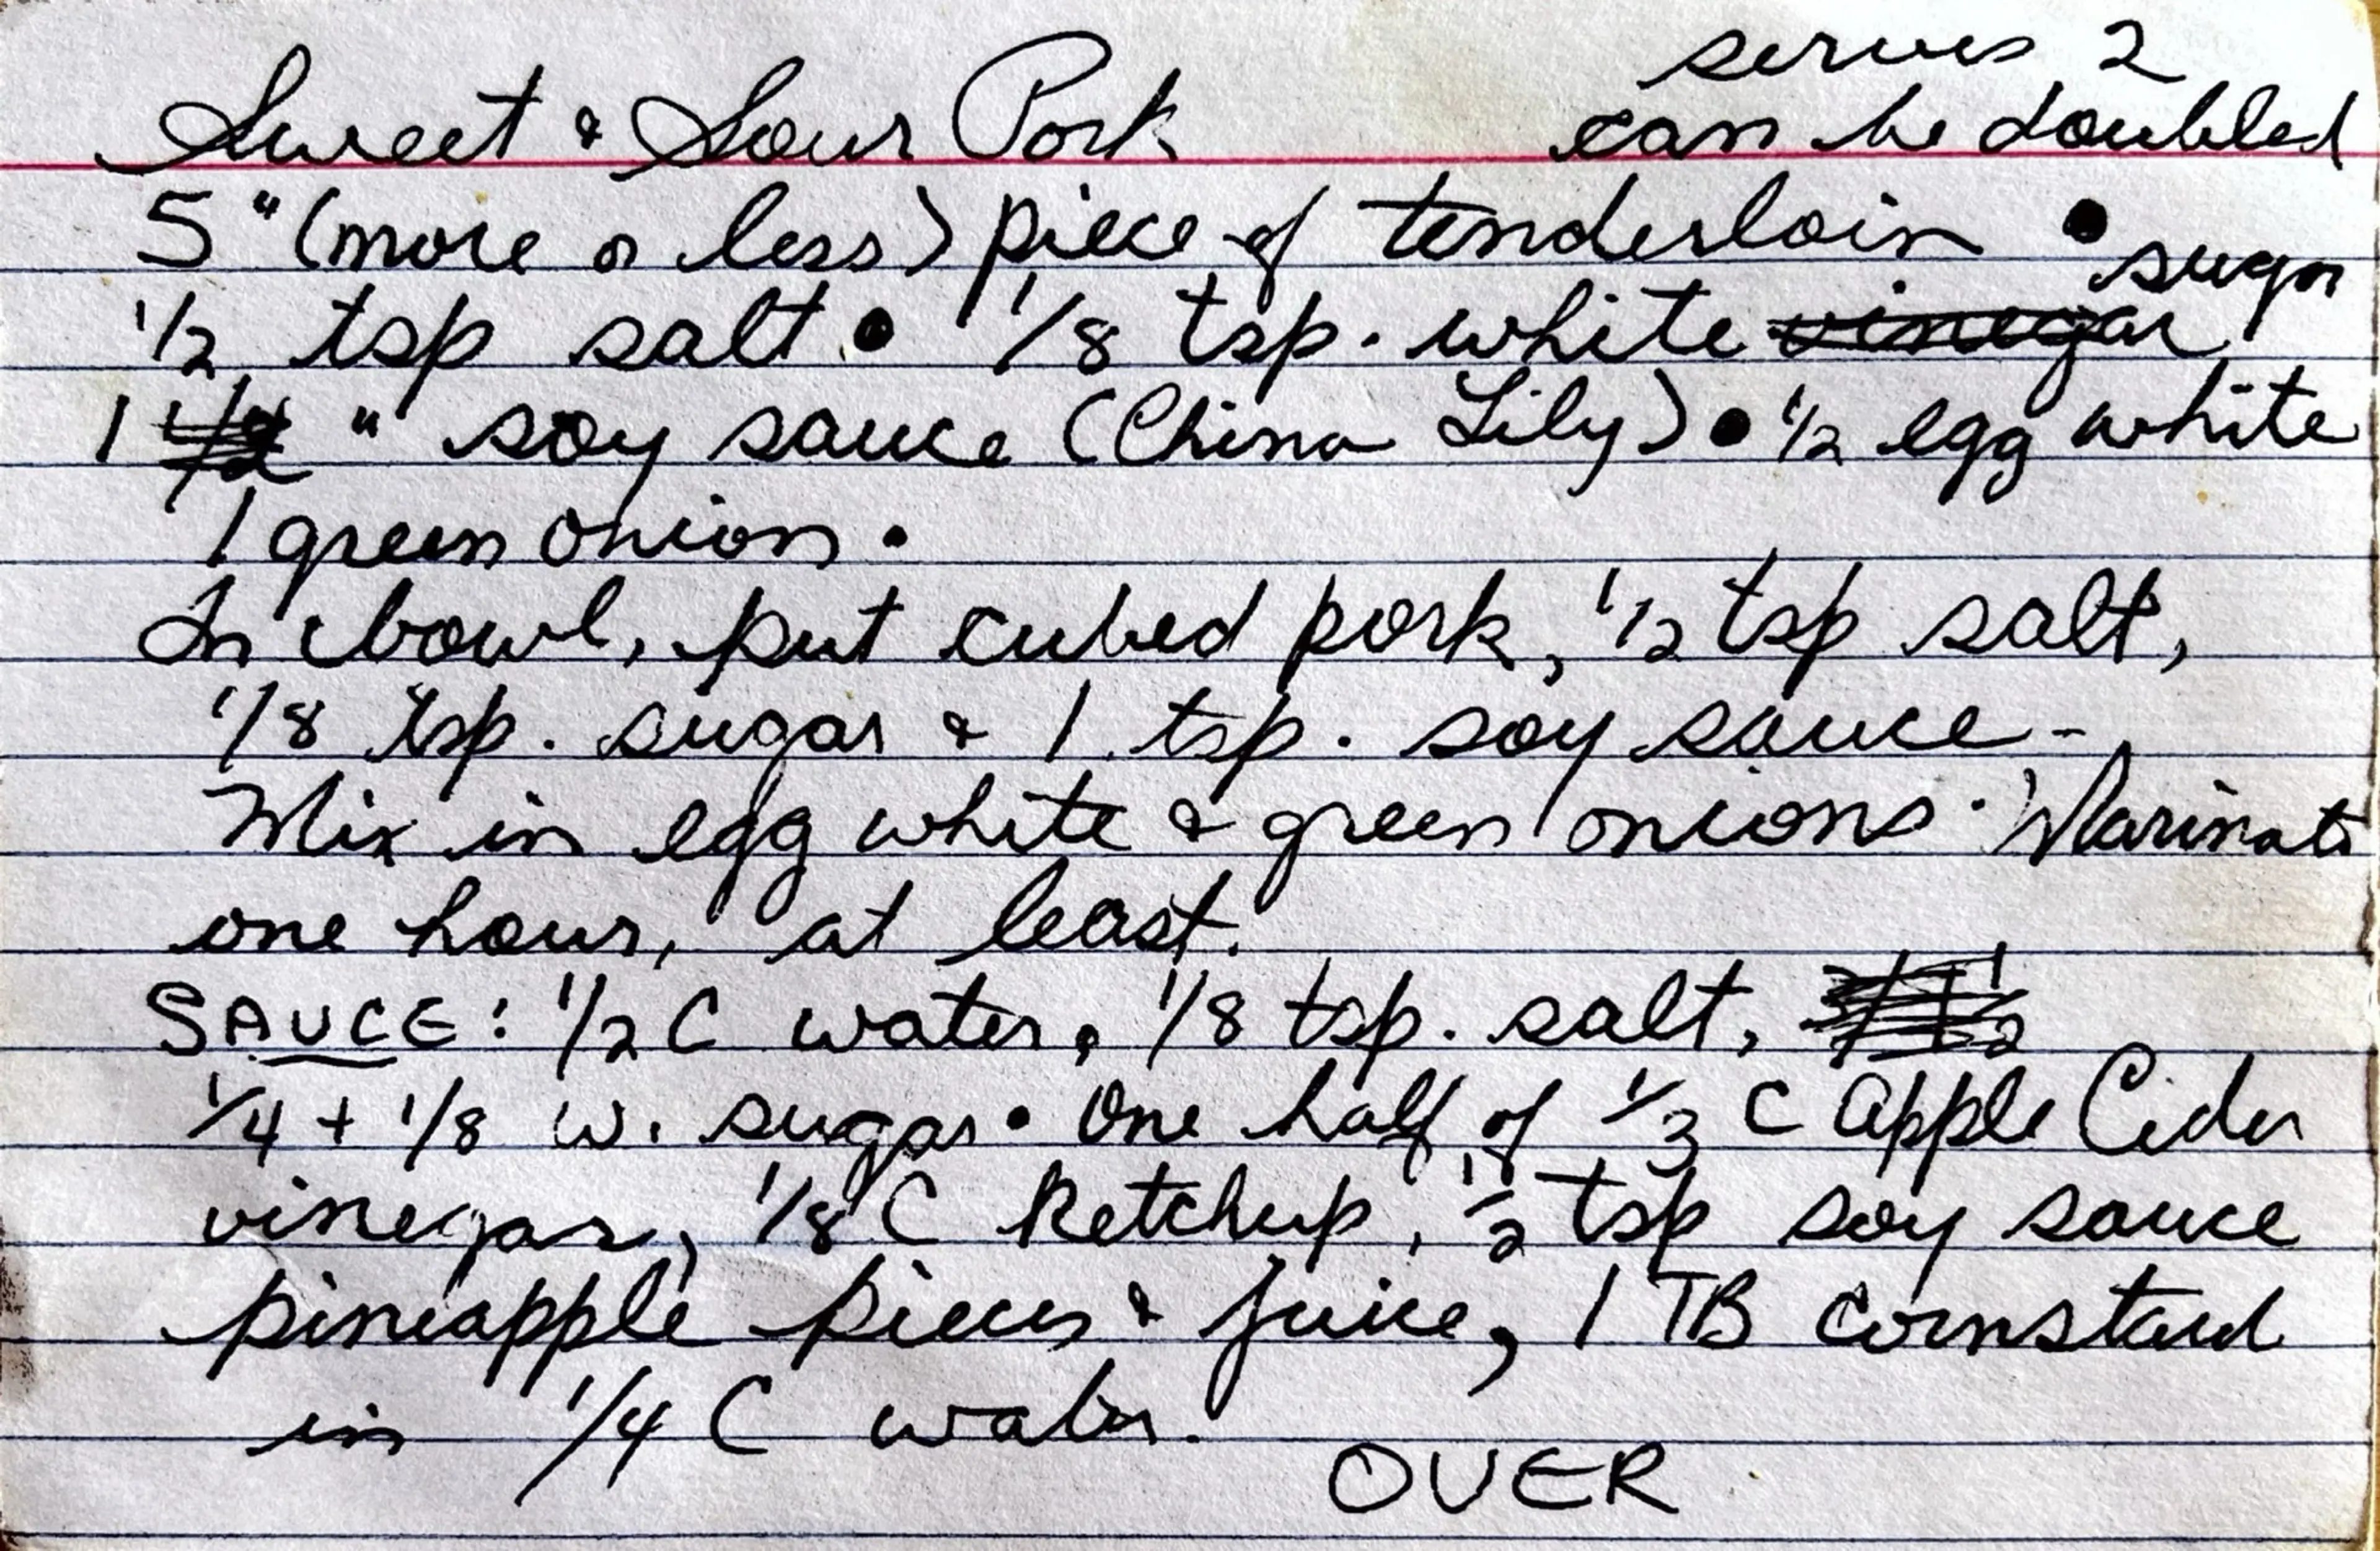 serves 2
Sweet & Sour Pork can be doubled
5" (more or less) piece of tenderloin • sugar
1/2 tsp salt • 1/8 tsp. white vinegar
1 " soy sauce (China Lily) • 1/2 egg white
1 green onion •
In bowl, put cubed pork, 1/2 tsp salt,
1/8 tsp. sugar & 1 tsp. soy sauce -
Mix in egg white & green onions. Marinate
one hour, at least.
SAUCE: 1/2 C water, 1/8 tsp. salt,
1/4 + 1/8 w. sugar • One half of 1/3 C Apple Cider
vinegar, 1/8 C Ketchup, 1/2 tsp soy sauce
pineapple pieces & juice, 1 TB cornstarch
in 1/4 C water.
OVER